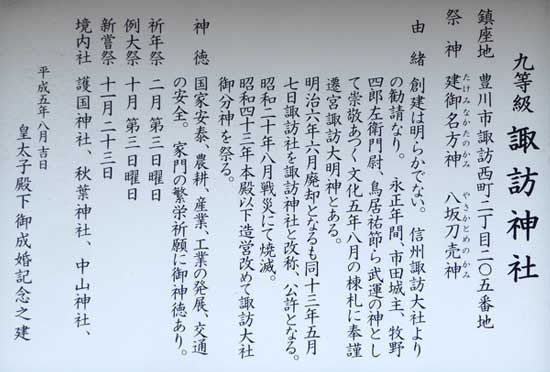 九等級 諏訪神社
鎮座地 豊川市諏訪西町二丁目二〇五番地
祭神 建御名方神 八坂刀売神
たけみなかたのかみ やさかとめのかみ
由緒 創建は明らかでない。信州諏訪大社より
の勧請なり。 永正年間、市田城主、牧野
四郎左衛門尉、鳥居祐節ら武運の神とし
て崇敬あつく文化五年八月の棟札に奉謹
遷宮諏訪大明神とある。
明治六年六月廃却となるも同十三年五月
七日諏訪社を諏訪神社と改称、公許となる。
昭和二十年八月戦災にて焼滅。
昭和四十三年本殿以下造営改めて諏訪大社
御分神を祭る。
神徳 国家安泰、農耕、産業、工業の発展、交通
の安全。 家門の繁栄祈願に御神徳あり。
祈年祭 二月 第三日曜日
例大祭 十月 第三日曜日
新嘗祭 十一月二十三日
境内社 護国神社、秋葉神社、中山神社、
平成五年八月吉日
皇太子殿下御成婚記念之建